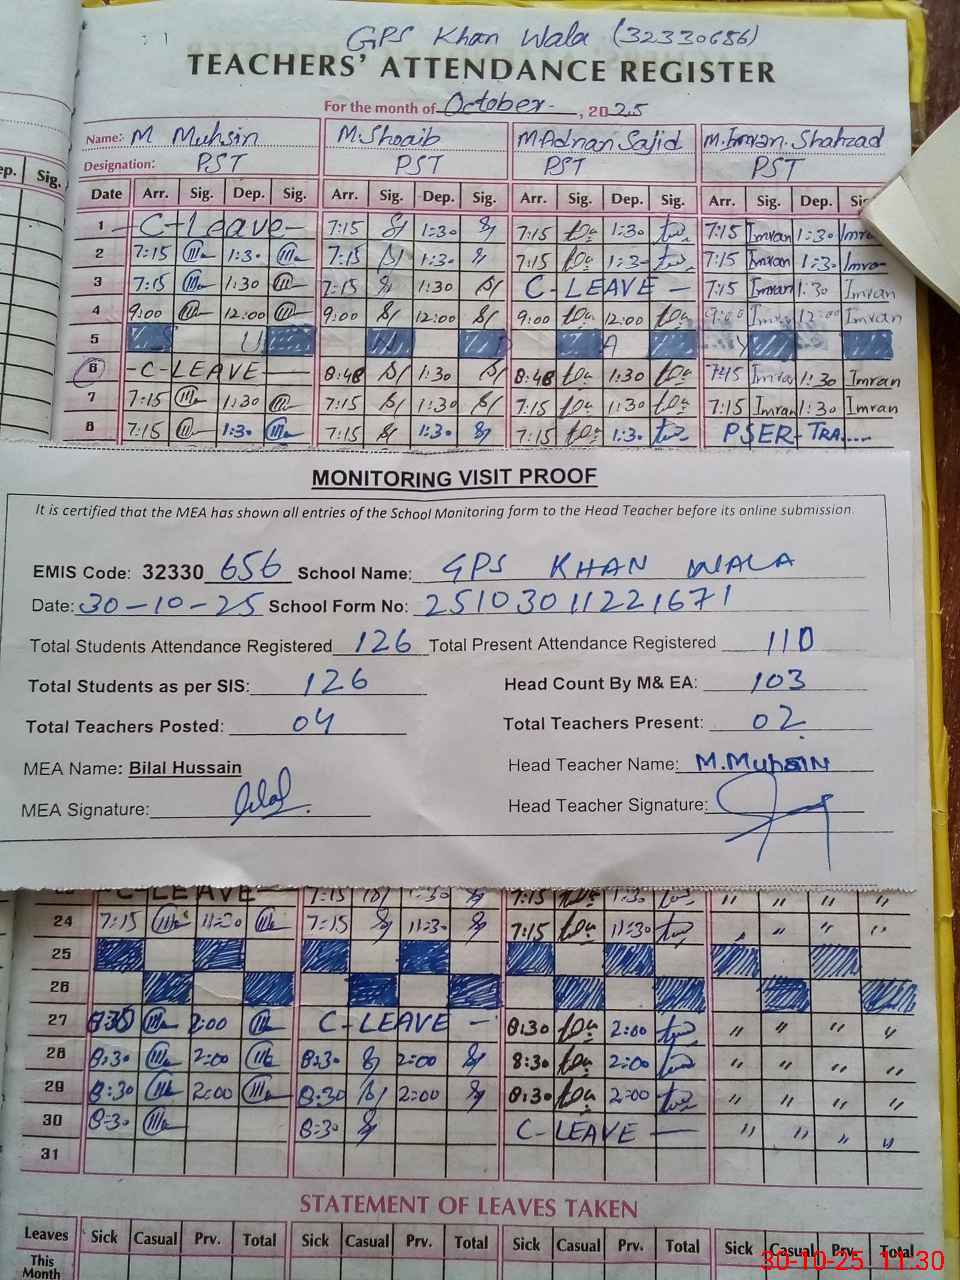 GPS Khan Wala (32330656)
TEACHERS' ATTENDANCE REGISTER
For the month of October-, 2025
Name:- M Muhsin M.Shoaib M.Adnan Sajid M.Imran.Shahzad
Designation: PST PST PST PST
ep. Sig.
Date Arr. Sig. Dep. Sig. Arr. Sig. Dep. Sig. Arr. Sig. Dep. Sig. Arr. Sig. Dep.
1 C-Leave- 7:15 1:30 7:15 1:30 7:15 Imran 1:30 Imra
2 7:15 1:30 7:15 1:30 7:15 1:3- 7:15 Imran 1:30 Imra
3 7:15 1:30 7:15 1:30 C-LEAVE - 7:15 Imran 1:30 Imran
4 9:00 12:00 9:00 12:00 9:00 12:00 9:00 Imra 12:00 Imran
5 S U N D A Y
6 -C-LEAVE- 8:48 1:30 8:48 1:30 7:45 Imra 1:30 Imran
7 7:15 1:30 7:15 1:30 7:15 1:30 7:15 Imran 1:30 Imran
8 7:15 1:30 7:15 1:30 7:15 1:30 PSER-TRA....
MONITORING VISIT PROOF
It is certified that the MEA has shown all entries of the School Monitoring form to the Head Teacher before its online submission.
EMIS Code: 32330 656 School Name: GPS KHAN WALA
Date: 30-10-25 School Form No: 25103011221671
Total Students Attendance Registered 126 Total Present Attendance Registered 110
Total Students as per SIS: 126 Head Count By M& EA: 103
Total Teachers Posted: 04 Total Teachers Present: 02
MEA Name: Bilal Hussain Head Teacher Name: M.Muhsin
MEA Signature: Head Teacher Signature:
C-LEAVE- 7:15 1:30 7:15 1:30 " " " "
24 7:15 11:30 7:15 11:30 7:15 11:30 " " "
25
26
27 8:30 2:00 C-LEAVE - 8:30 2:00 " " " "
28 8:30 2:00 8:30 2:00 8:30 2:00 " " " "
29 8:30 2:00 8:30 2:00 8:30 2:00 " " " "
30 8:30 8:30 C-LEAVE - " " " "
31
STATEMENT OF LEAVES TAKEN
Leaves Sick Casual Prv. Total Sick Casual Prv. Total Sick Casual Prv. Total Sick Casual Prv. Total
This Month
30-10-25 11:30